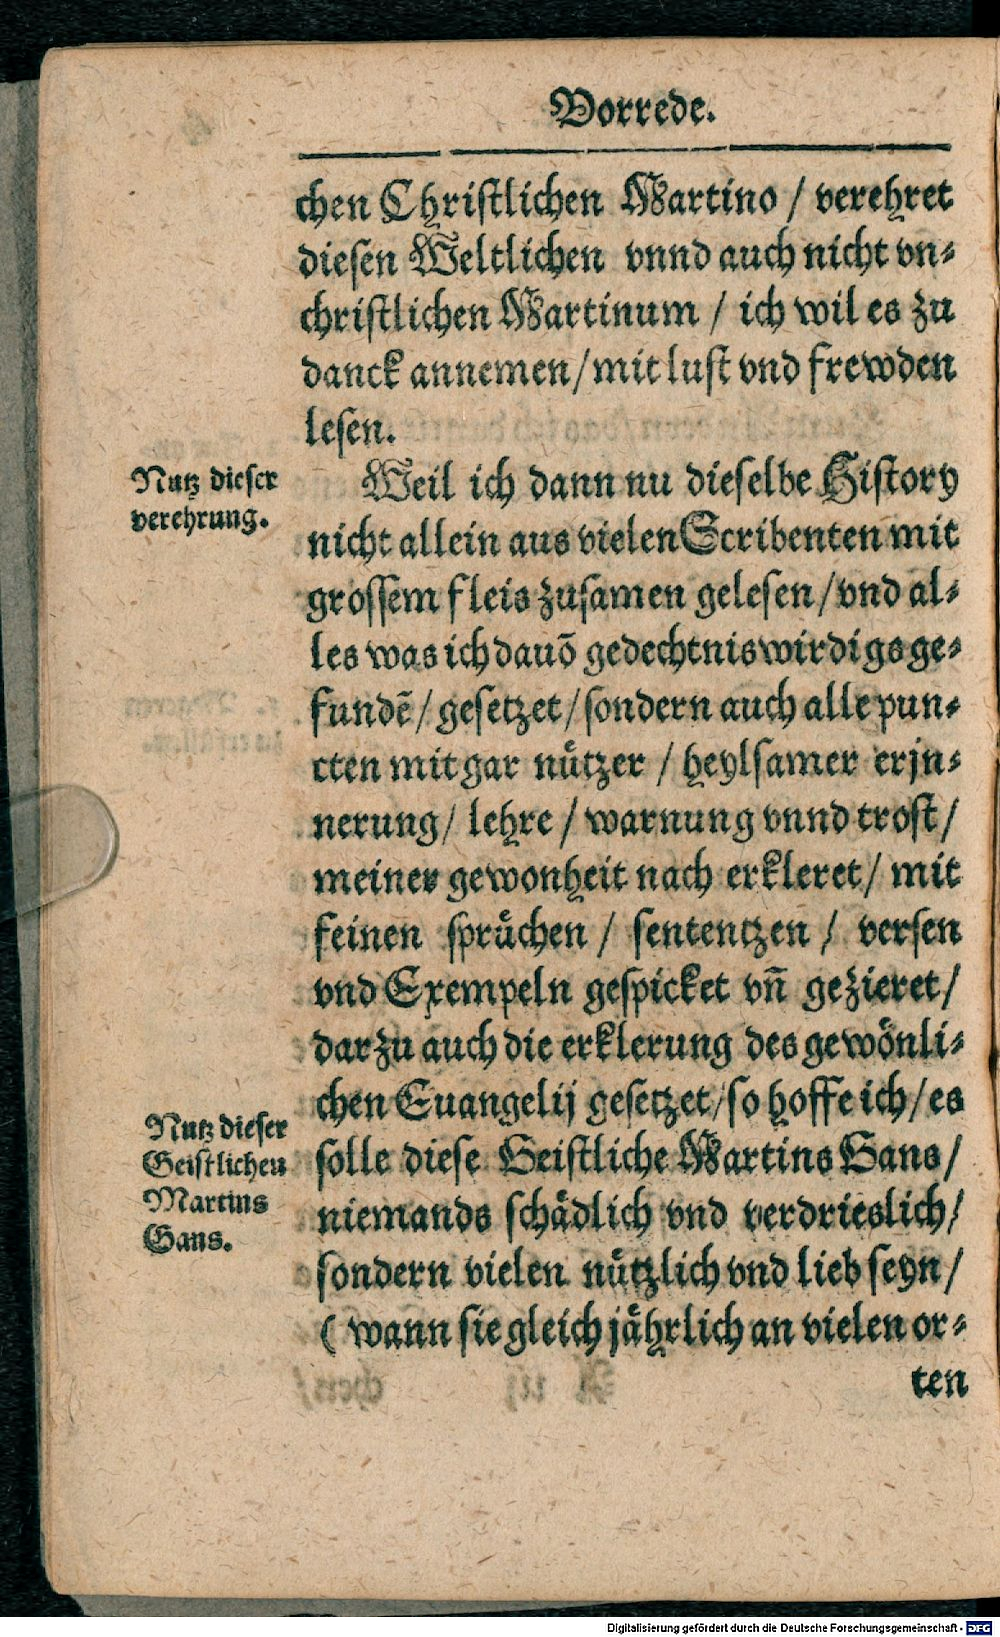 Vorrede.
chen Christlichen Martino / verehret
diesen Weltlichen vnnd auch nicht vn⸗
christlichen Martinum / ich wil es zu
danck annemen / mit lust vnd frewden
lesen.
Nutz dieser
verehrung.
Weil ich dann nu dieselbe History
nicht allein aus vielen Scribenten mit
grossem fleis zusamen gelesen / vnd al⸗
les was ich dauō gedechtniswirdigs ge⸗
fundē / gesetzet / sondern auch alle pun⸗
cten mit gar nuͤtzer / heylsamer erjn⸗
nerung / lehre / warnung vnnd trost /
meiner gewonheit nach erkleret / mit
feinen spruͤchen / sententzen / versen
vnd Exempeln gespicket vn̄ gezieret /
darzu auch die erklerung des gewoͤnli⸗
chen Euangelij gesetzet / so hoffe ich / es
Nutz dieser
Geistlichen
Martins
Gans.
solle diese Geistliche Martins Gans /
niemands schaͤdlich vnd verdrieslich /
sondern vielen nuͤtzlich vnd lieb seyn /
( wann sie gleich jaͤhrlich an vielen or⸗
ten
Digitalisierung gefördert durch die Deutsche Forschungsgemeinschaft - DFG